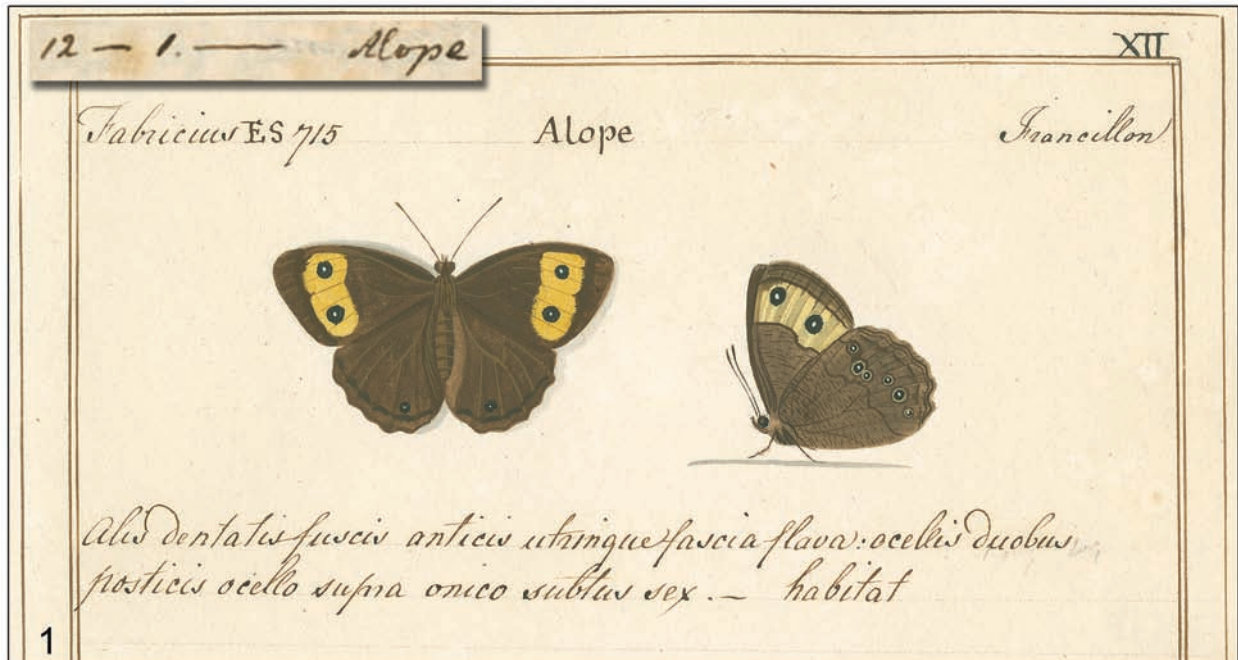 12 — 1. —— Alope
XII
Fabricius ES 715 Alope Francillon
Alis dentatis fuscis anticis utringue fascia flava: ocellis duobus
posticis ocello supra onico subtus sex. — habitat
1